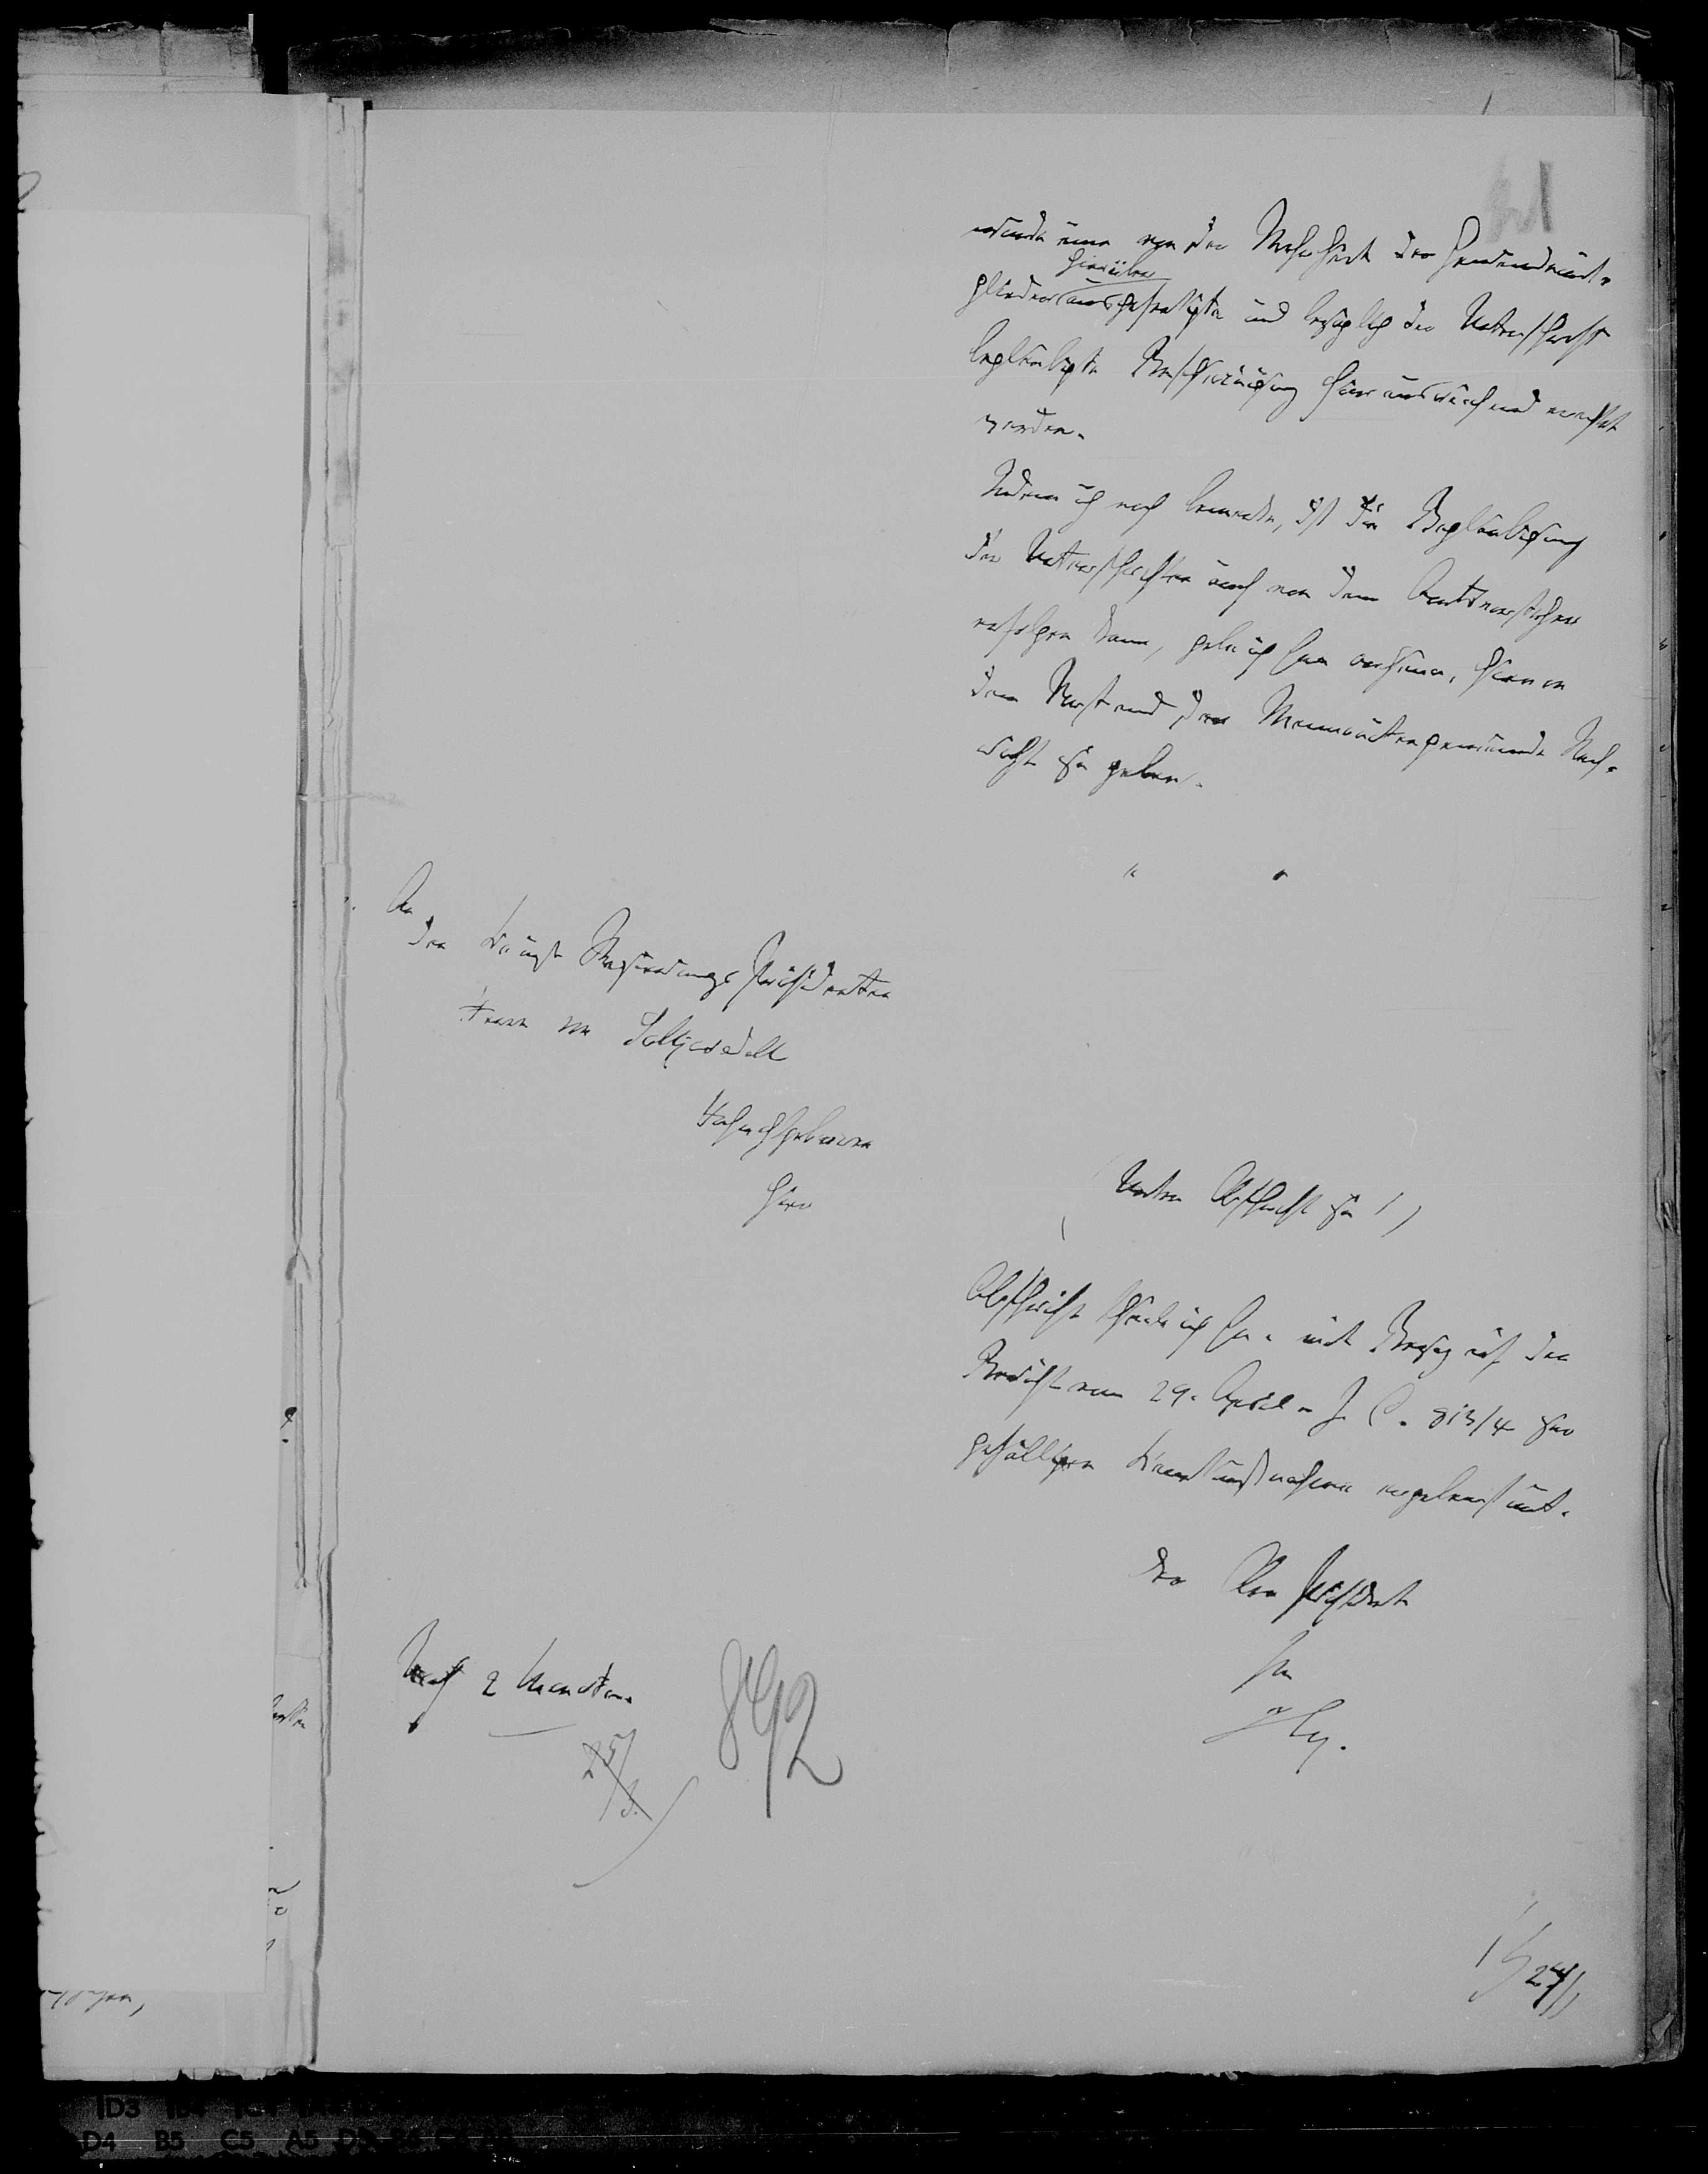 würde eine von der Mehrheit der Gemeindemit-
glieder hierüber ausgefertigte und bezüglich der Unterschrift
beglaubigte Bescheinigung für ausreichend erachtet
werden.
Indem ich noch bemerke, daß die Beglaubigung
der Unterschriften auch von dem Amtsvorsteher
erfolgen kann, gebe ich Ew anheim, hievon
dem Vorstand der Mennonitengemeinde Nach-
richt zu geben.
An
den Königl Regierungs Präsidenten
Herrn von
Hochwohlgeboren
hier
(Unter Abschrift zu 1)
Abschrift theile ich Ew. mit Bezug auf den
Bericht vom 29. April J. C. 813/4 zur
gefälligen Kenntnißnahme ergebenst mit.
Der Ober Präsident
Nach 2 Monaten
25/
892
24/